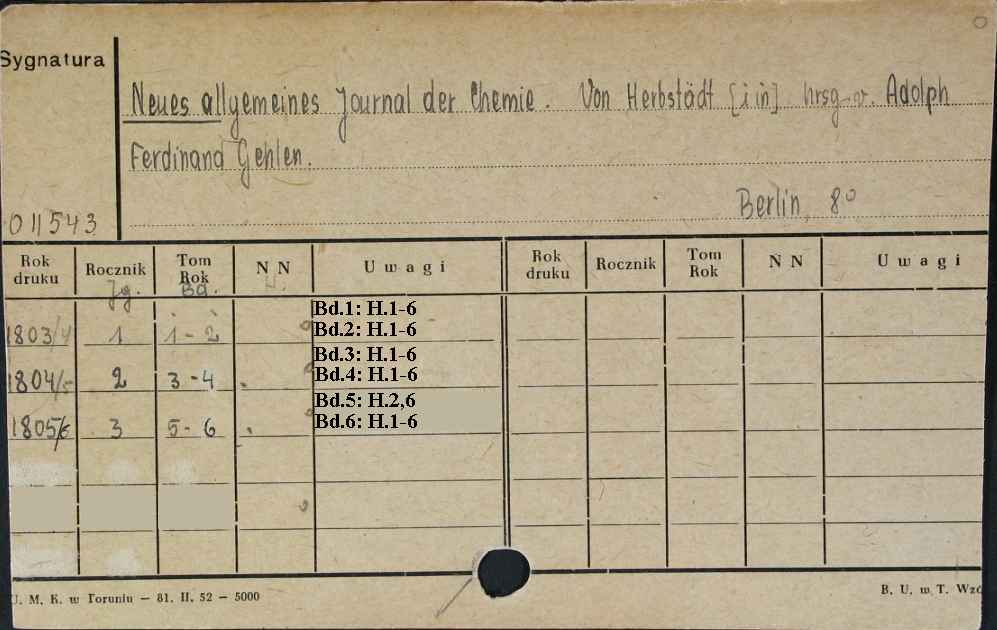 Sygnatura
Neues allgemeines Journal der Chemie. Von Herbstädt [i in] hrsg. v. Adolph
Ferdinand Gehlen.
Berlin, 8°
011543
Rok druku Rocznik Tom Rok N N Uwagi Rok druku Rocznik Tom Rok N N Uwagi
Jg. Bd. H.
1803/4 1 1-2 Bd.1: H.1-6
Bd.2: H.1-6
1804/5 2 3-4 Bd.3: H.1-6
Bd.4: H.1-6
1805/6 3 5-6 Bd.5: H.2,6
Bd.6: H.1-6
U. M. K. w Toruniu — 81. II. 52 — 5000
B. U. w T. Wzó